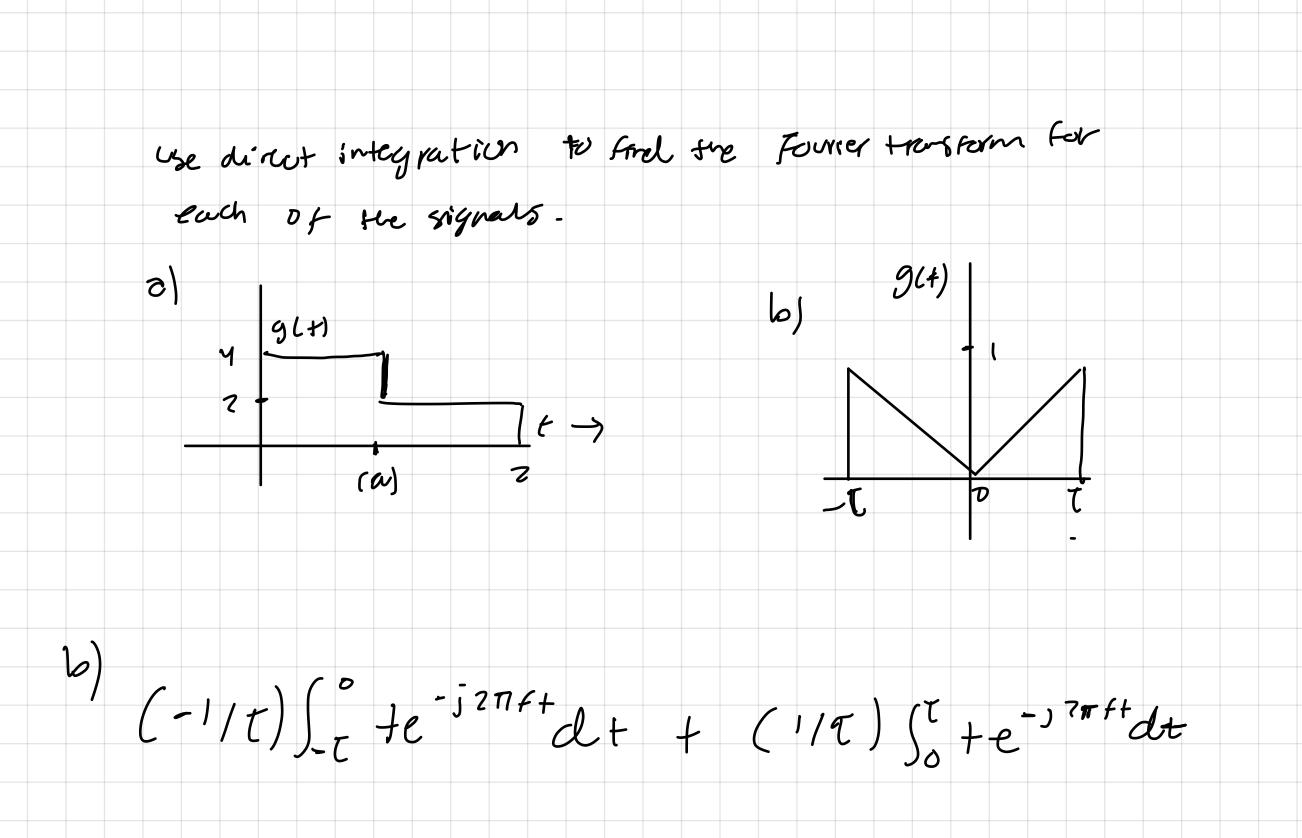 use direct integration to find the Fourier transform for
each of the signals.
a)
g(t)
4
2
t →
(a)
2
b)
g(t)
1
-τ
0
τ
b)
(-1/τ) ∫_{-τ}^{0} te^{-j2πft} dt + (1/τ) ∫_{0}^{τ} te^{-j2πft} dt